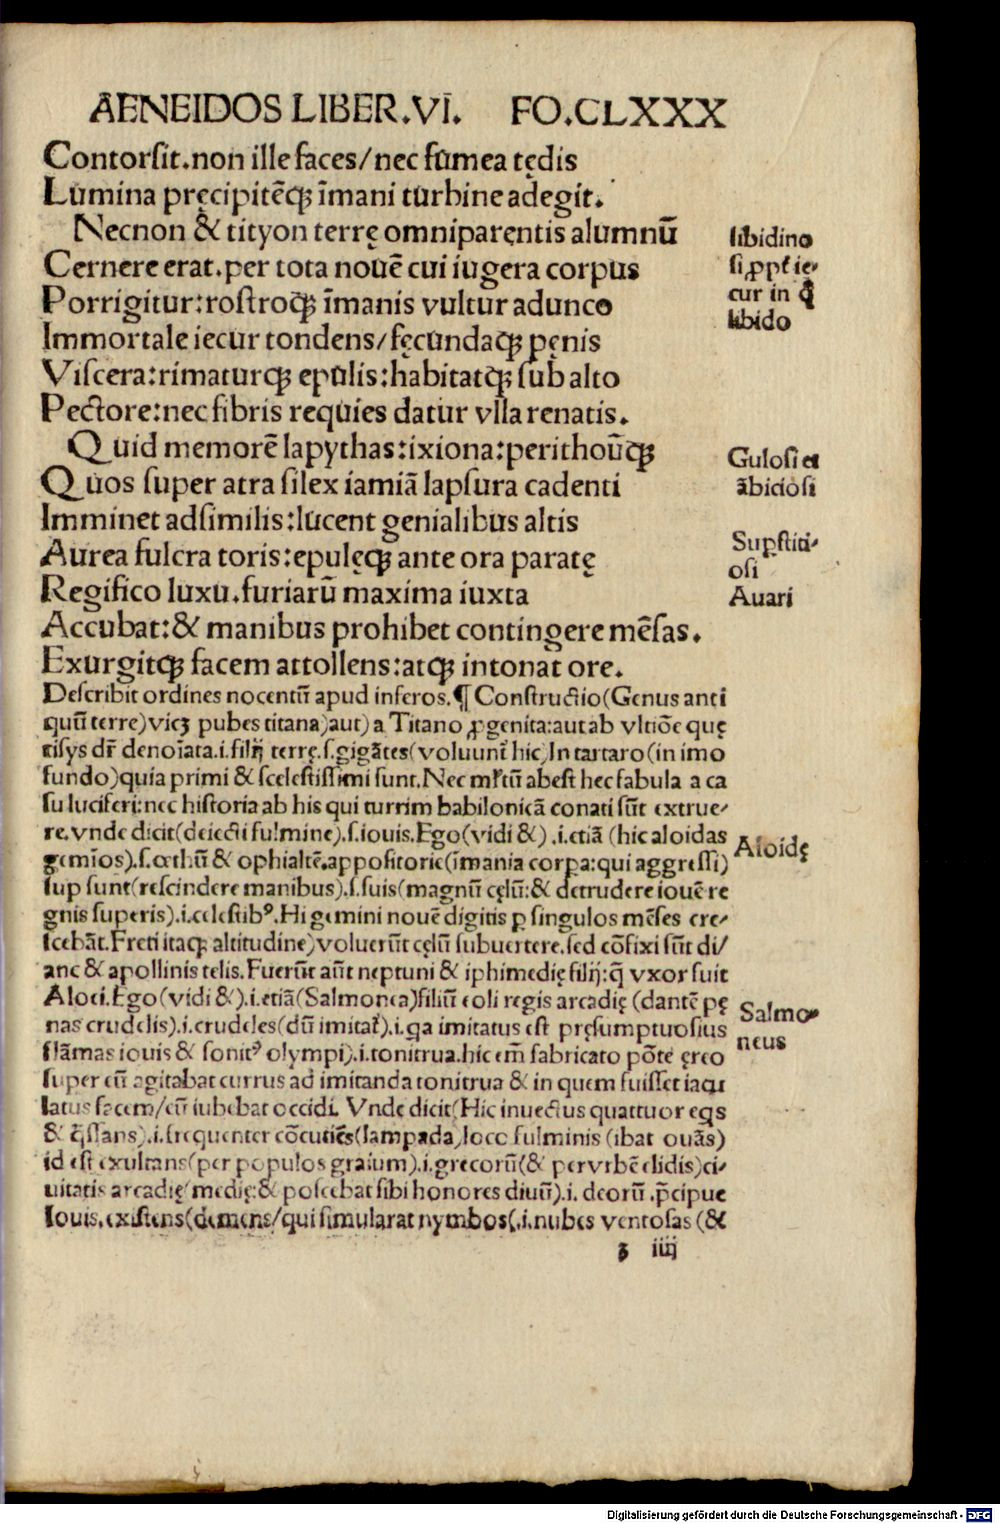 AENEIDOS LIBER.VI. FO.CLXXX
Contorsit.non ille faces/nec fumea tędis
Lumina pręcipitēq; īmani turbine adegit.
Necnon & tityon terrę omniparentis alumnū
Cernere erat.per tota nouē cui iugera corpus
Porrigitur:rostroq; īmanis vultur adunco
Immortale iecur tondens/fęcundaq; pęnis
Viscera:rimaturq; epulis:habitatq; sub alto
Pectore:nec fibris requies datur vlla renatis.
Quid memorē lapythas:ixiona:perithoūq;
Quos super atra silex iamiā lapsura cadenti
Imminet adsimilis:lucent genialibus altis
Aurea fulcra toris:epulęq; ante ora paratę
Regifico luxu.furiarū maxima iuxta
Accubat:& manibus prohibet contingere mēsas.
Exurgitq; facem attollens:atq; intonat ore.
libidino
si ꝓpt ie-
cur in q̄
libido
Gulosi et
ābiciosi
Supstiti-
osi
Auari
Describit ordines nocentū apud inferos.¶ Constructio(Genus anti
quū terre)vicꝫ pubes titana)aut) a Titano ꝓgenita:aut ab vltiōe quę
tisys dr̄ denoīata.i.filij terrę.s.gigātes(voluunt̄ hic)In tartaro(in imo
fundo)quia primi & scelestissimi sunt.Nec mltū abest hec fabula a ca
su luciferi:nec historia ab his qui turrim babilonicā conati sūt extrue-
re.vnde dicit(deiecti fulmine).s.iouis.Ego(vidi &).i.etiā (hic aloidas
gemīos).s.othū & ophialtē.appositorie(īmania corpa:qui aggressi)
sup sunt(rescindere manibus).s.suis(magnū cęlū:& detrudere iouē re
gnis superis).i.celestibꝰ.Hi gemini nouē digitis ꝑ singulos mēses cre-
scebāt.Freti itaq; altitudine)voluerūt cęlū subuertere.sed cōfixi sūt di/
anę & apollinis telis.Fuerūt aūt neptuni & iphimedię filij:q̄ vxor fuit
Aloei.Ego(vidi &).i.etiā(Salmonea)filiū eoli regis arcadię (dantē pę
nas crudelis).i.crudeles(dū imitat̄).i.qa imitatus est pręsumptuosius
flāmas iouis & sonitꝰ olympi).i.tonitrua.hic em̄ fabricato pōte ęreo
super eū agitabat currus ad imitanda tonitrua & in quem fuisset iacu
latus facem/eū iubebat occidi. Vnde dicit(Hic inuectus quattuor eqs
& q̄ssans).i.frequenter cōcutiēs(lampada)loco fulminis (ibat ouās)
id est exultans(per populos graium).i.grecorū(& per vrbē elidis)ci-
uitatis arcadię medię:& poscebat sibi honores diuū).i. deorū.p̄cipue
Iouis.existens(demens/qui simularat nymbos(.i.nubes ventosas (&
Aloidę
Salmo-
neus
ꝫ iiij
Digitalisierung gefördert durch die Deutsche Forschungsgemeinschaft - DFG